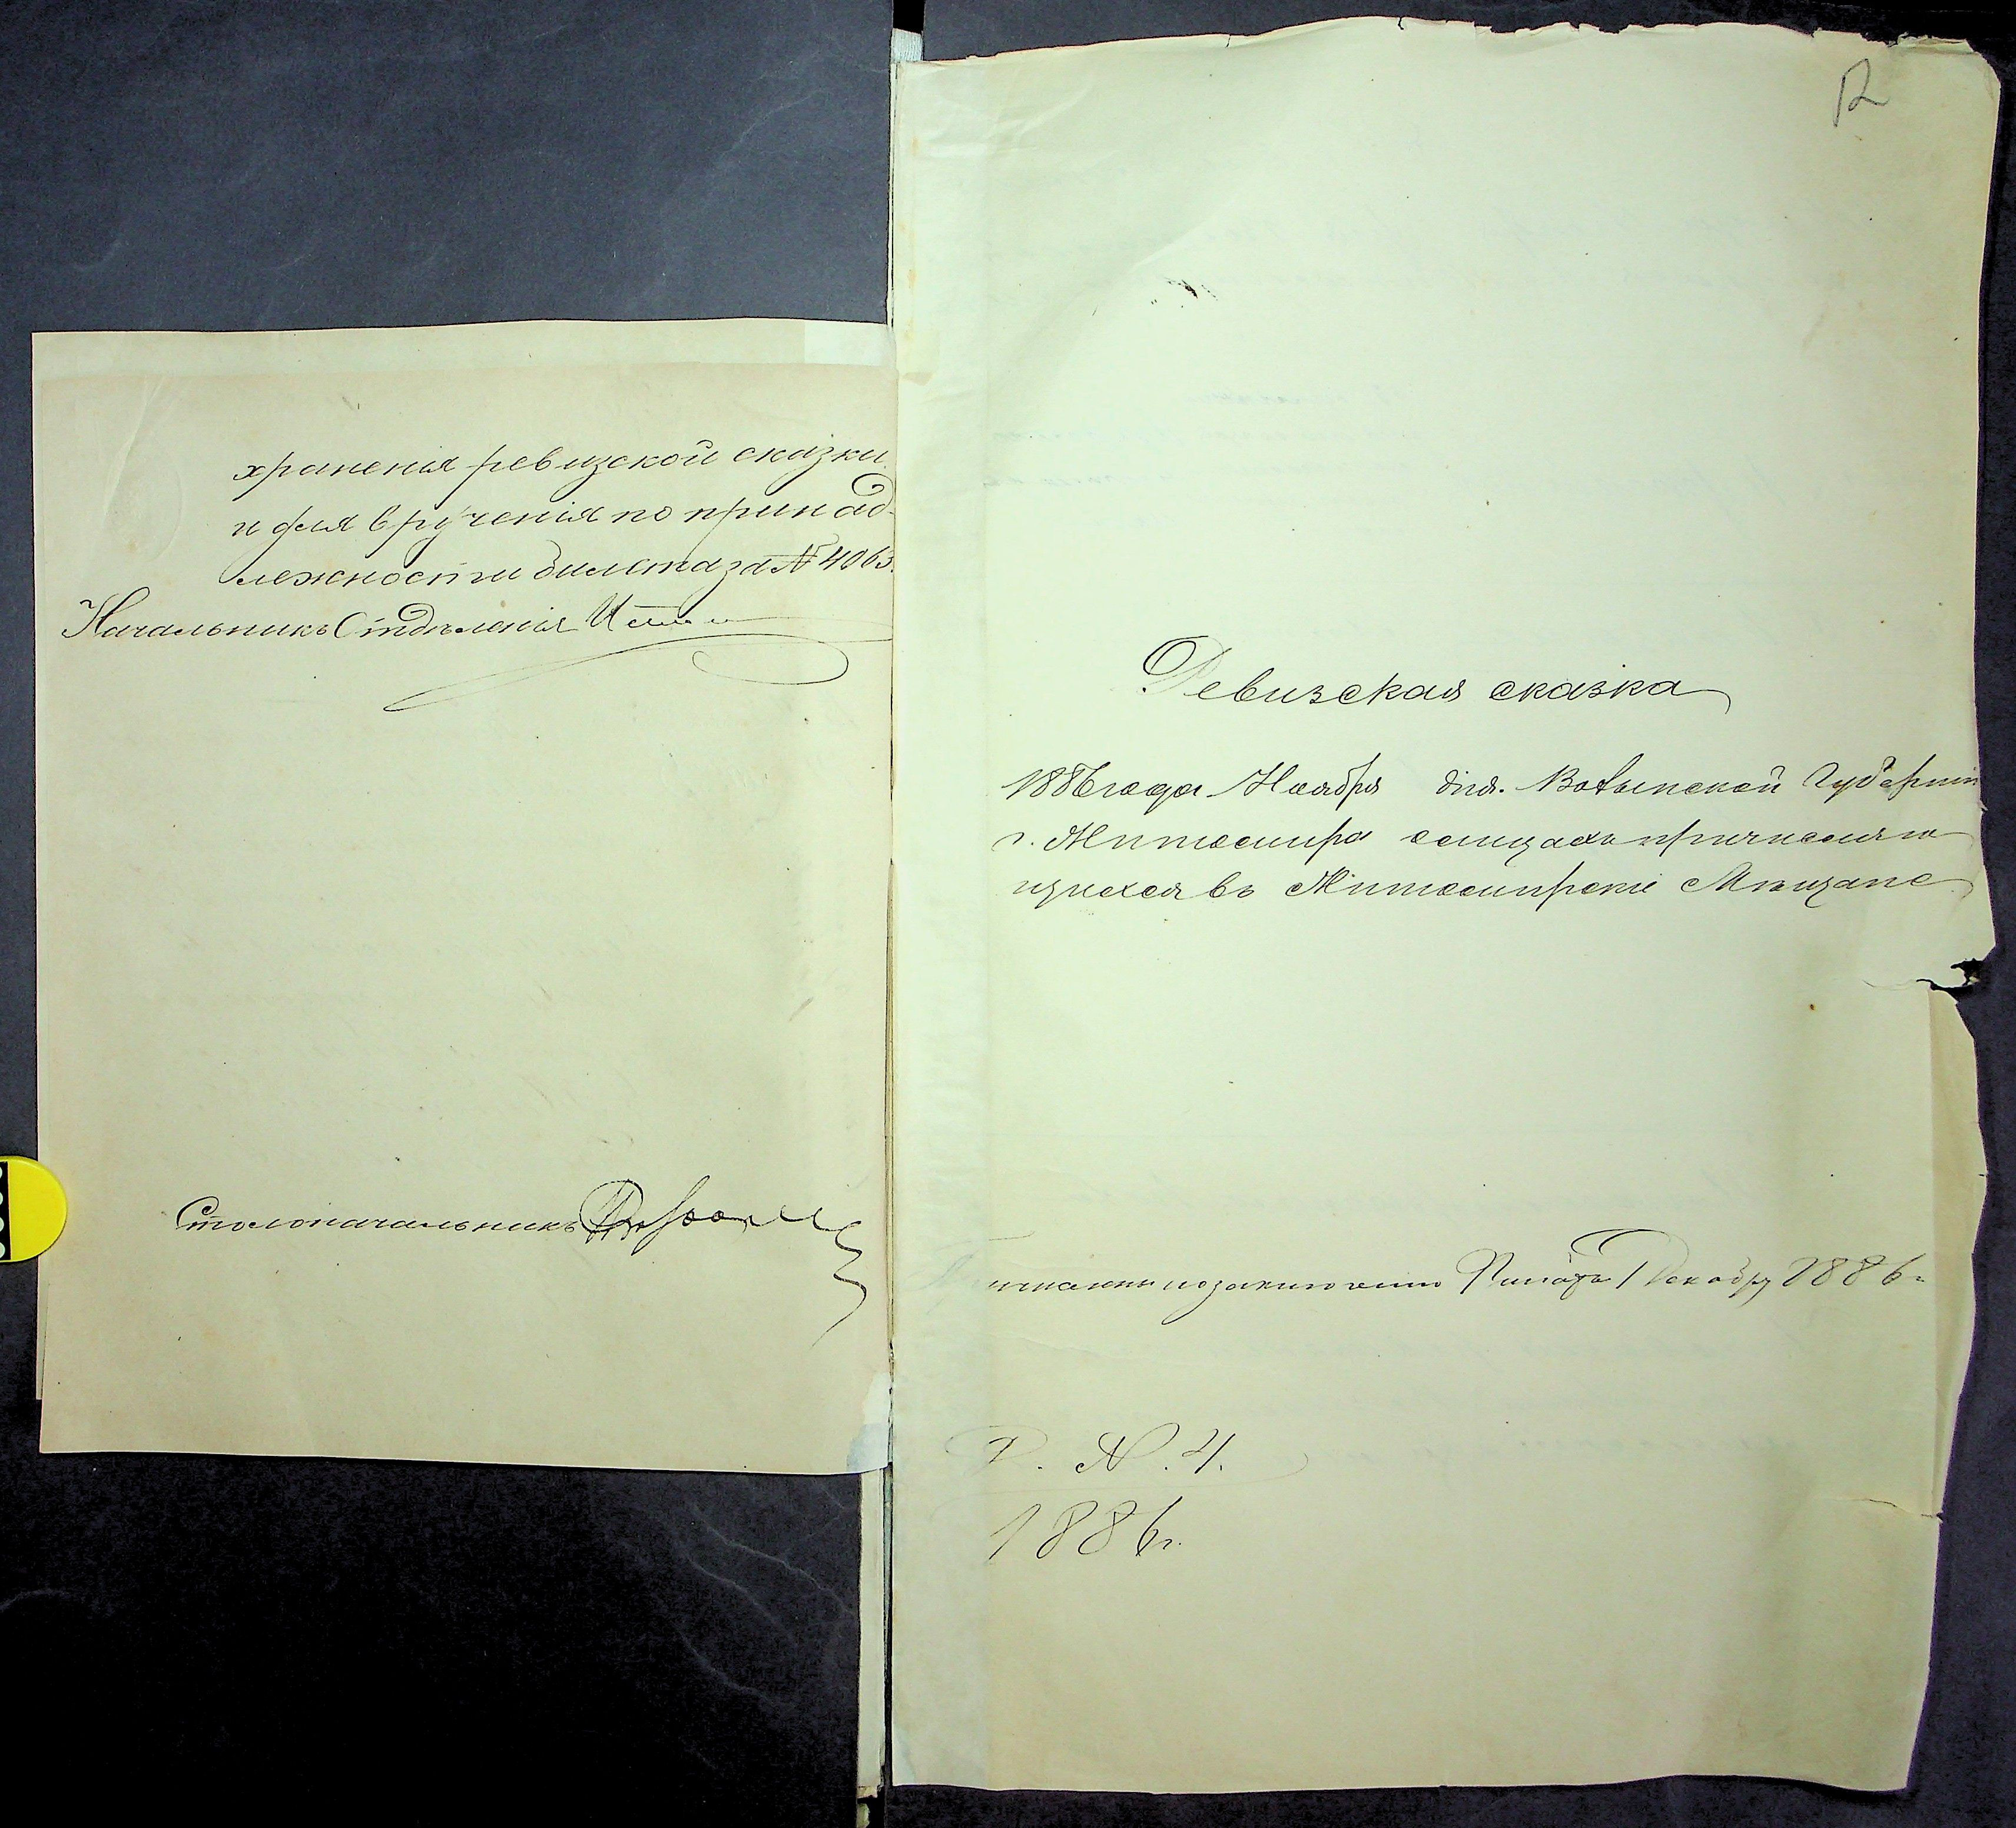 храненія ревизской сказки
и для врученія по принад-
лежности билета за № 4063.
Начальникъ Отдѣленія
Столоначальникъ
12
Ревизская сказка
1886 года Ноября дня. Волынской Губерніи
г. Житомира о лицахъ причисляю
щихся въ Житомирскіе Мѣщане
по заключению Палаты 1 Декабря 1886 г.
Р. №. 4.
1886 г.